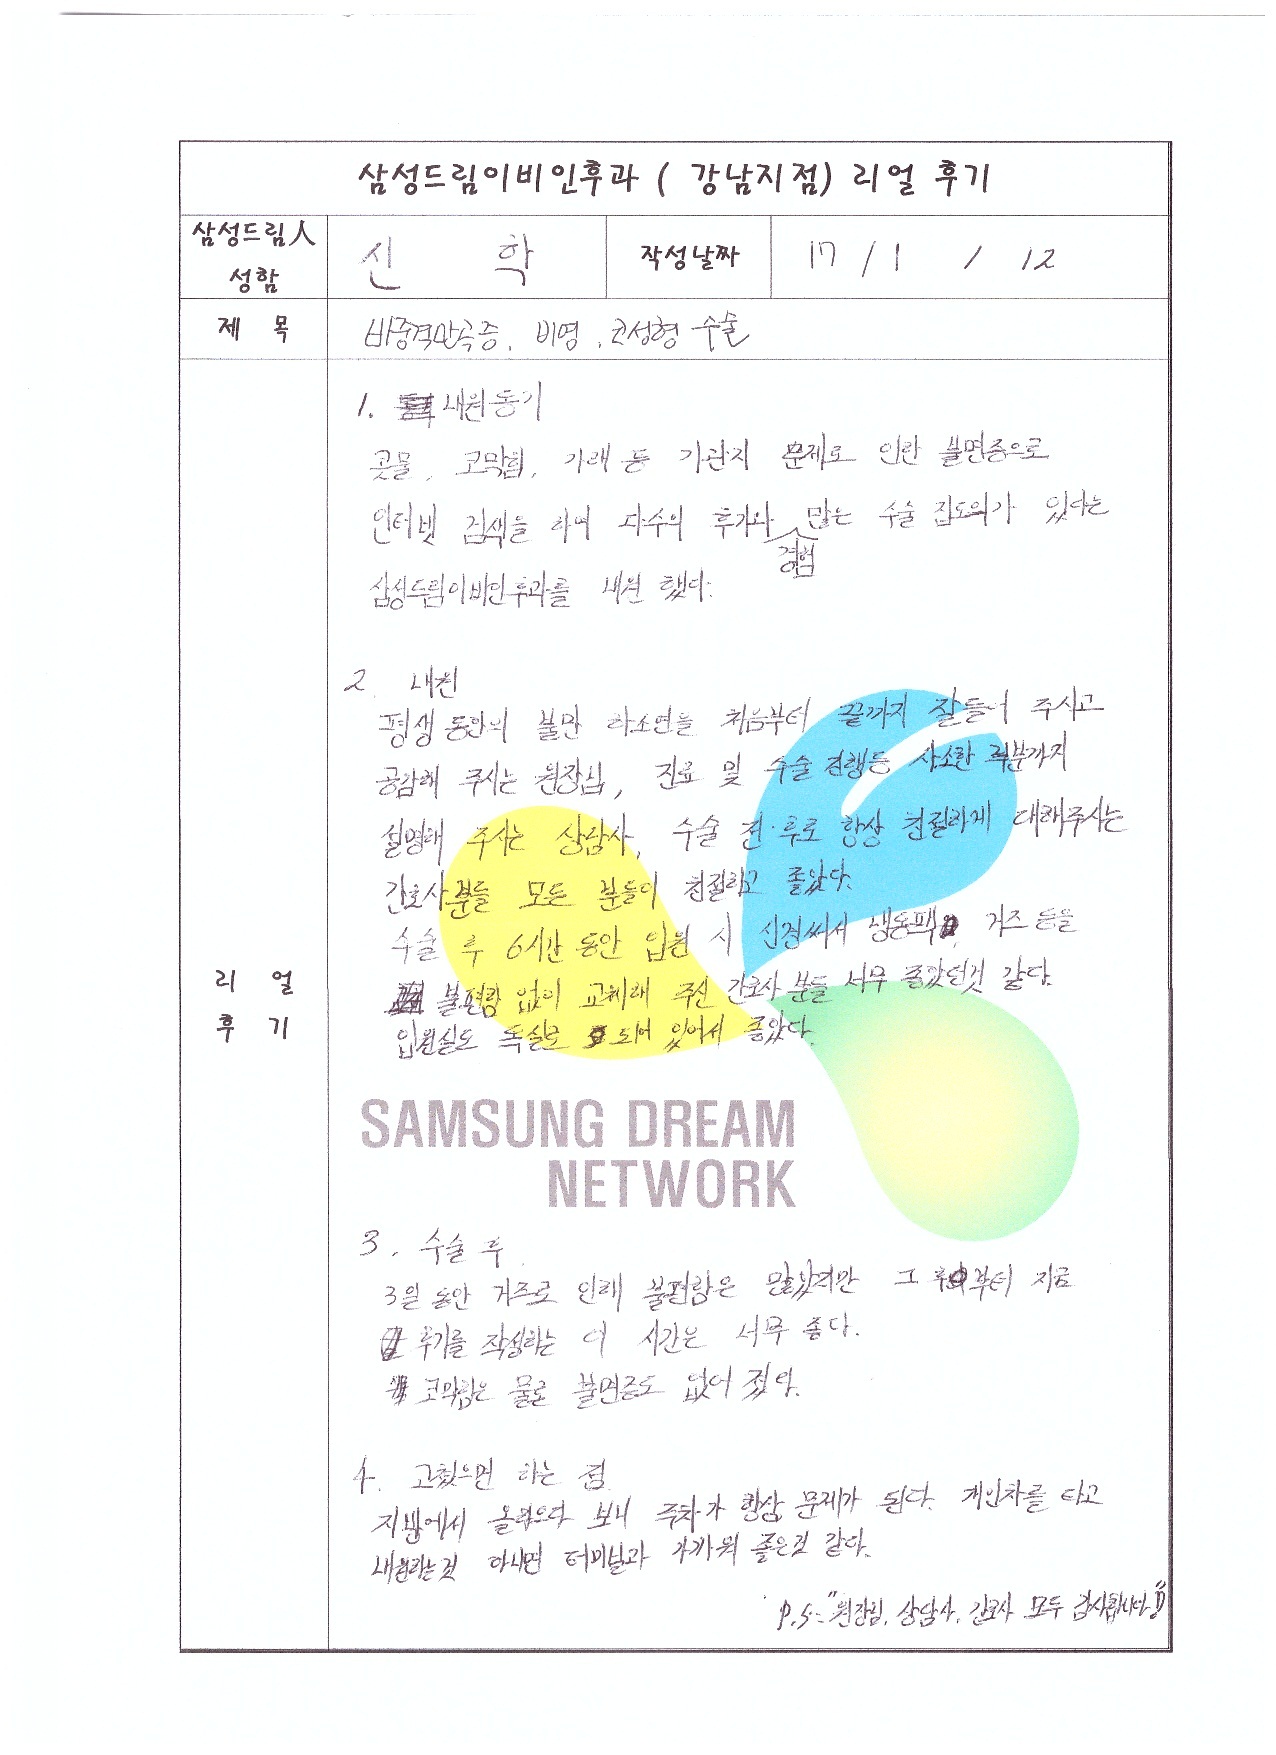 삼성드림이비인후과 ( 강남지점) 리얼 후기
삼성드림人 성함
신 학
작성날짜
17 / 1 / 12
제 목
비중격만곡증, 비염, 코성형 수술
리 얼 후 기
1. 내원동기
콧물, 코막힘, 가래 등 기관지 문제로 인한 불면증으로
인터넷 검색을 하여 다수의 후기와 경험 많은 수술 집도의가 있다는
삼성드림이비인후과를 내원 했다.
2. 내원
평생 동안의 불만 하소연을 처음부터 끝까지 잘들어 주시고
공감해 주시는 원장님, 진료 및 수술 진행등 사소한 부분까지
설명해 주시는 상담사, 수술 전·후로 항상 친절하게 대해주시는
간호사분들 모든 분들이 친절하고 좋았다.
수술 후 6시간 동안 입원 시 신경써서 냉동팩, 거즈 등을
불편함 없이 교체해 주신 간호사 분들 너무 좋았던것 같다.
입원실도 독실로 되어 있어서 좋았다.
SAMSUNG DREAM
NETWORK
3. 수술 후
3일 동안 거즈로 인해 불편함은 많았지만 그 후부터 지금
후기를 작성하는 이 시간은 너무 좋다.
코막힘은 물론 불면증도 없어 졌다.
4. 고쳤으면 하는 점
지방에서 올라오다 보니 주차가 항상 문제가 된다. 개인차를 타고
내원하는것 아니면 터미널과 가까워 좋은것 같다.
P.S: "원장님, 상담사, 간호사 모두 감사합니다"